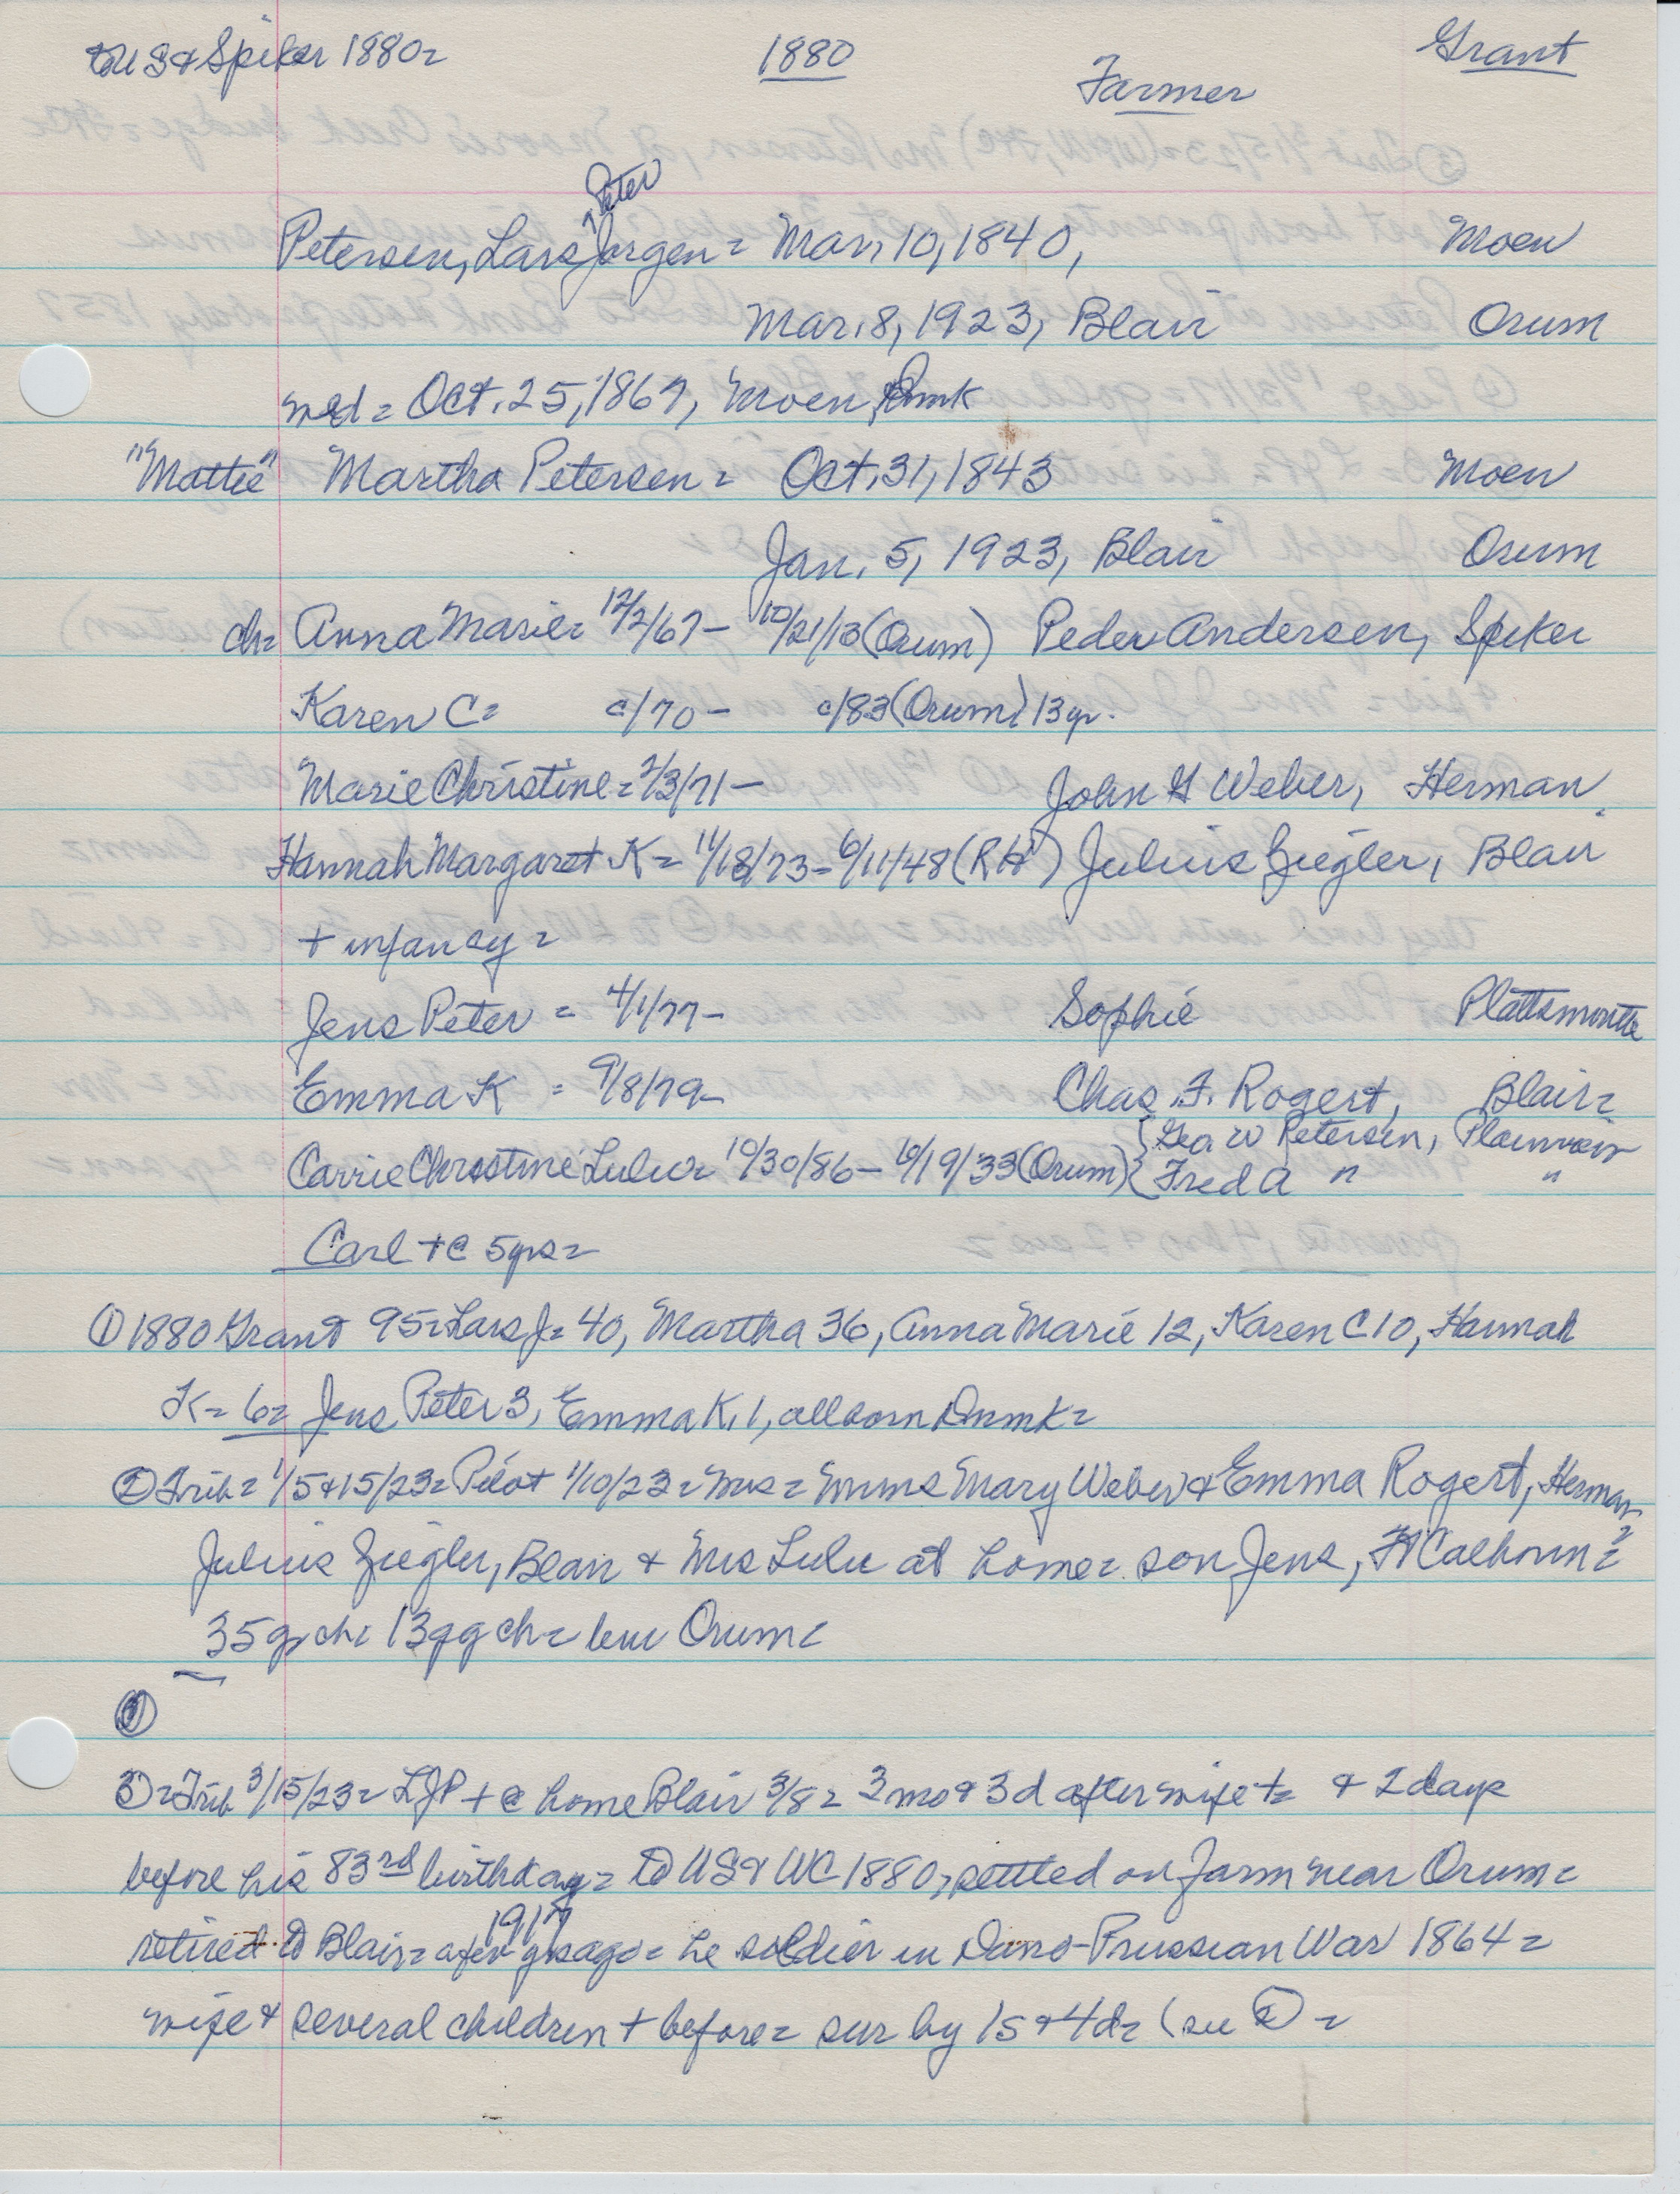 to US & Spiker 1880= 1880 Farmer Grant
Peter
Petersen, Lars ^ Jorgen = Mar. 10, 1840, Moen
Mar. 8, 1923, Blair Orum
wed = Oct. 25, 1867, Moen, Dnmk
"Mattie" Martha Petersen = Oct. 31, 1843 Moen
Jan. 5, 1923, Blair Orum
ch= Anna Marie= 12/2/67 – 10/21/13 (Orum) Peder Andersen, Spiker
Karen C= c/70 – c/83 (Orum) 13 yr.
Marie Christine = 2/3/71 – John G Weber, Herman
Hannah Margaret K = 11/18/73 – 6/11/48 (RH) Julius Ziegler, Blair
+ infancy =
Jens Peter = 4/1/77 – Sophie Plattsmouth
Emma K = 9/8/79 – Chas. F. Rogert, Blair=
Carrie Christine Lulu= 10/30/86 – 6/19/33 (Orum) { Geo W Petersen, Plainview
{ Fred A " "
Carl + @ 5yrs =
① 1880 Grant 95= Lars J= 40, Martha 36, Anna Marie 12, Karen C 10, Hannah
K= 6= Jens Peter 3, Emma K. 1, all born Dnmk=
② Trib= 1/5 & 15/23= Pilot 1/10/23= Mrs= Mmes Mary Weber & Emma Rogert, Herman=
Julius Ziegler, Blair & Mrs Lulu at home= son Jens, Ft Calhoun=
35 gr ch= 13 gg ch= bur Orum=
③ = Trib 3/15/23= LJP + @ home Blair 3/8= 2 mo & 3 d after wife += & 2 days
before his 83rd birthday= to US & WC 1880, settled on farm near Orum=
1917
retired to Blair= a few yrs ago= he soldier in Dano-Prussian War 1864=
wife & several children + before= sur by 1s & 4d= (see ②) =